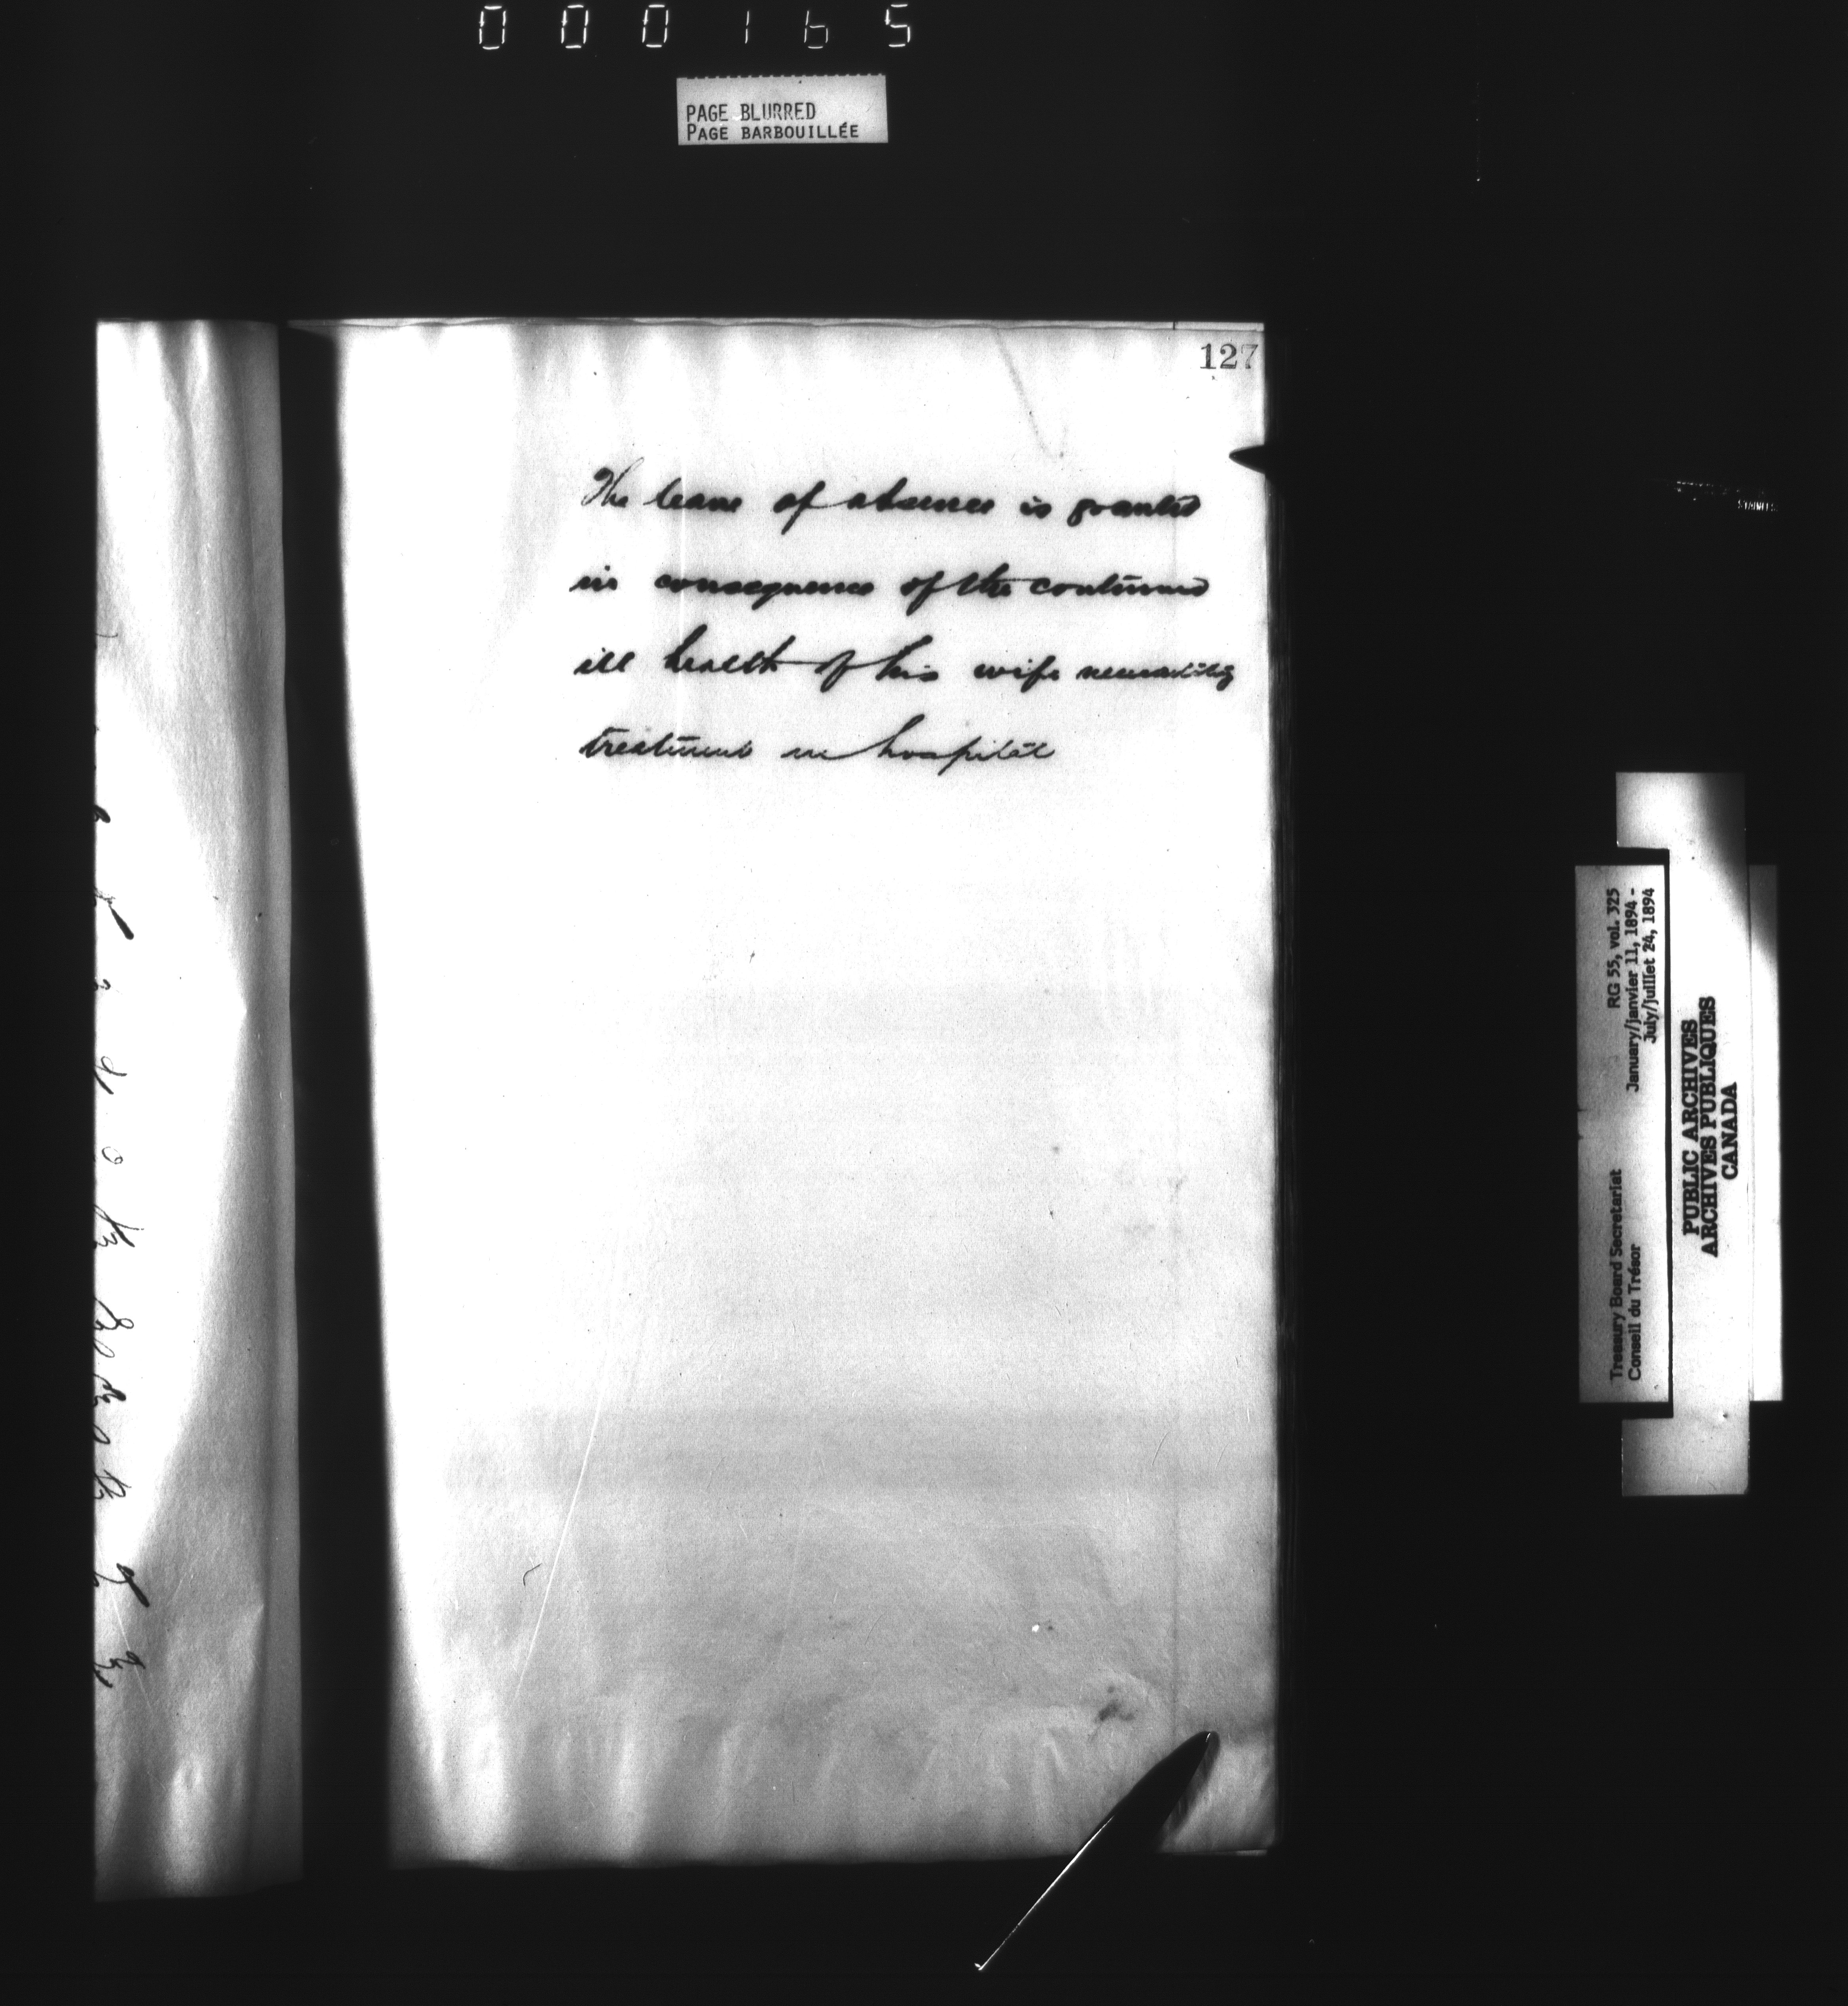 000165
PAGE BLURRED
PAGE BARBOUILLÉE
127
The leave of absence is granted
in consequence of the continued
ill health of his wife necessitating
treatment in hospital
RG 55, vol. 325
January/janvier 11, 1894 -
July/juillet 24, 1894
Treasury Board Secretariat
Conseil du Trésor
PUBLIC ARCHIVES
ARCHIVES PUBLIQUES
CANADA